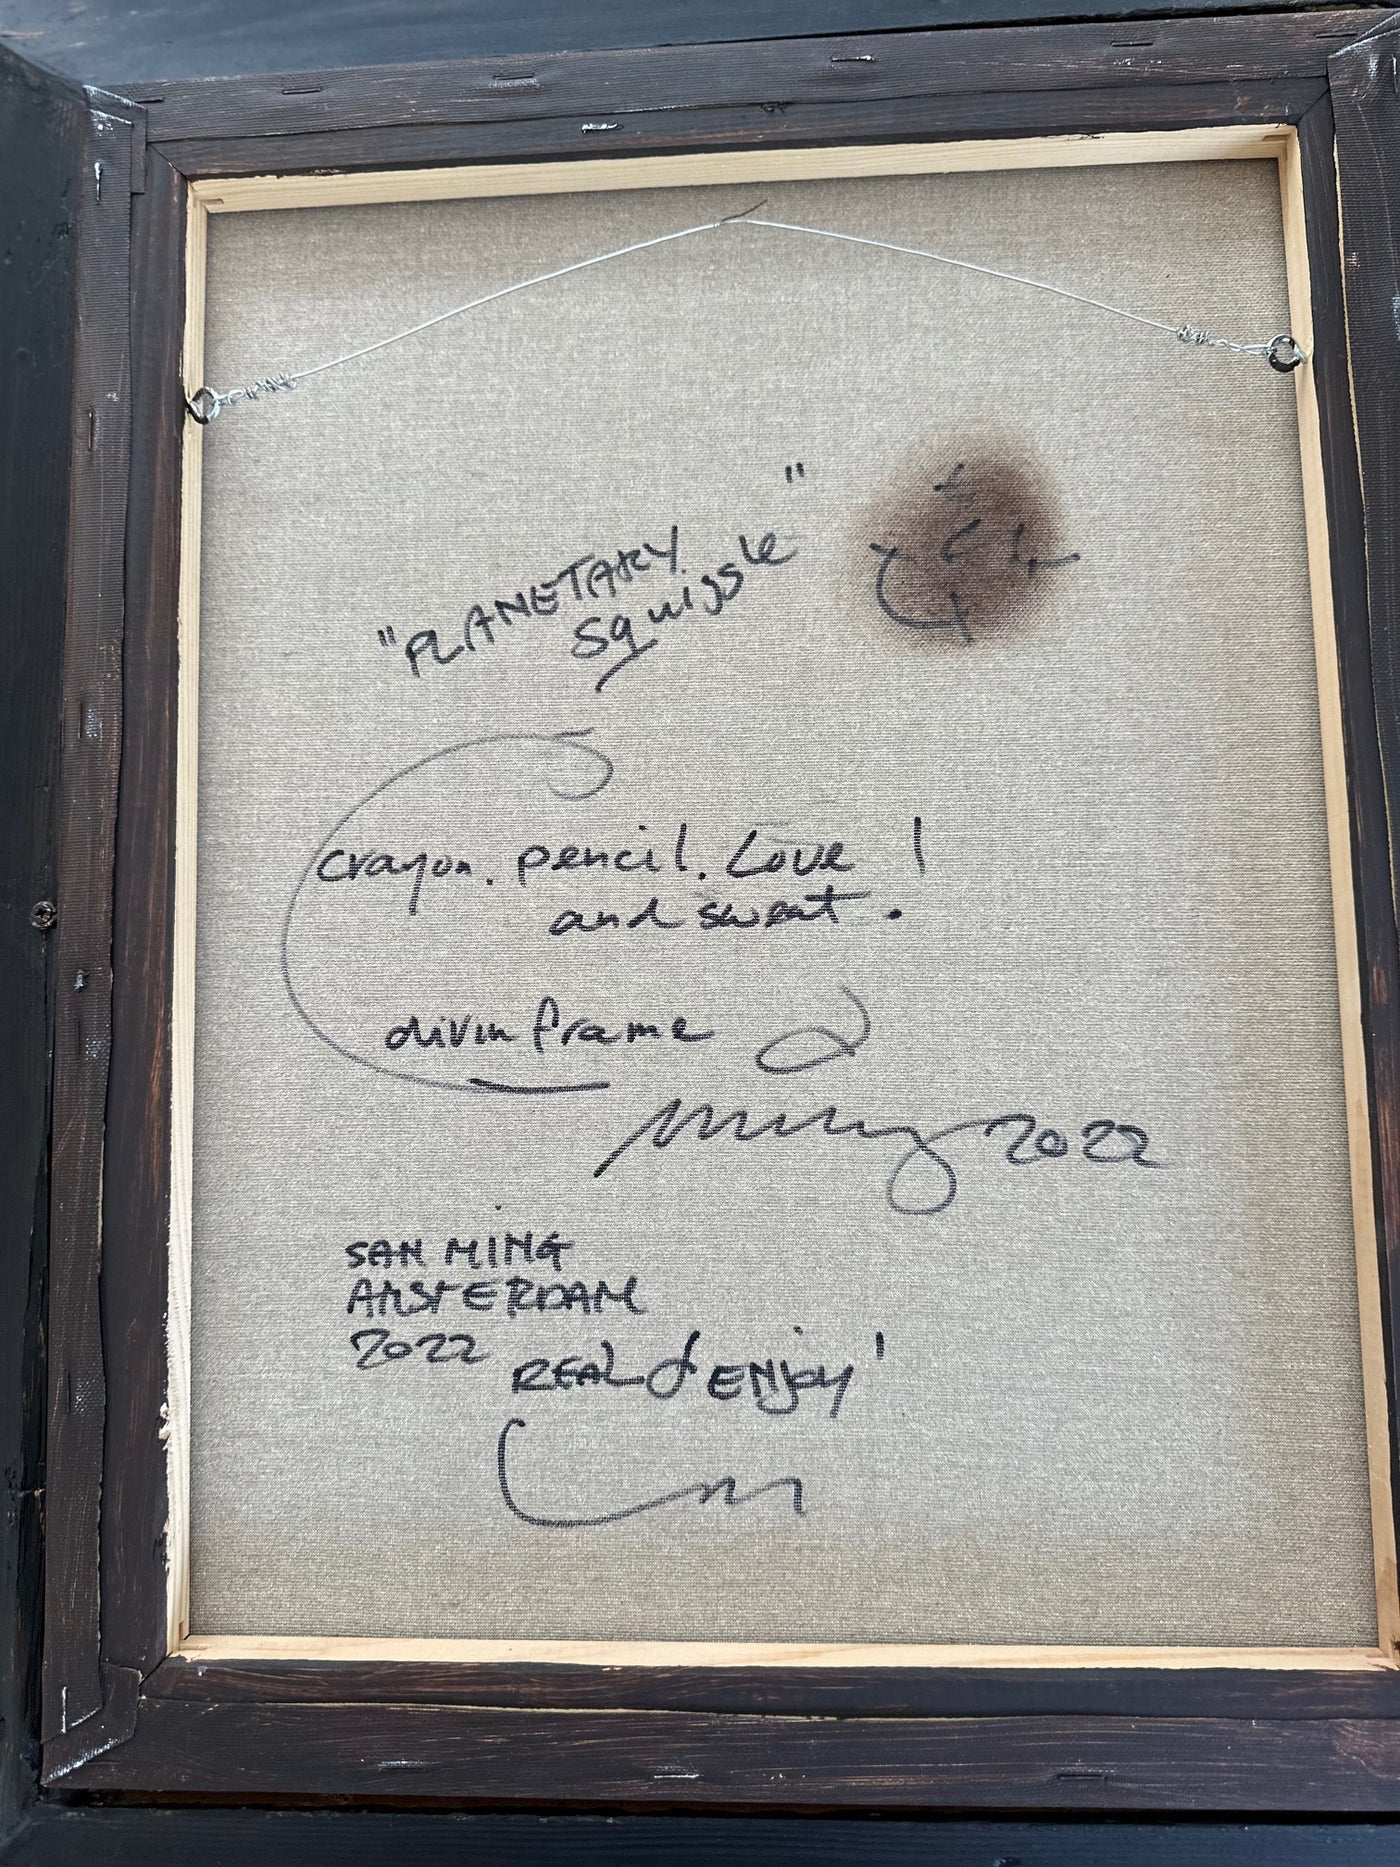 "PLANETARY
squiggle"
crayon. pencil. Love!
and sweat.
divin frame
2022
SAN MING
AMSTERDAM
2022
REAL & ENJOY!